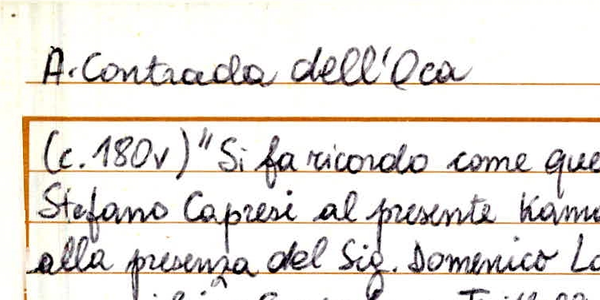 A. Contrada dell'Oca
(c. 180v) "Si fa ricordo come que
Stefano Capresi al presente Kam
alla presenza del Sig. Domenico Lo